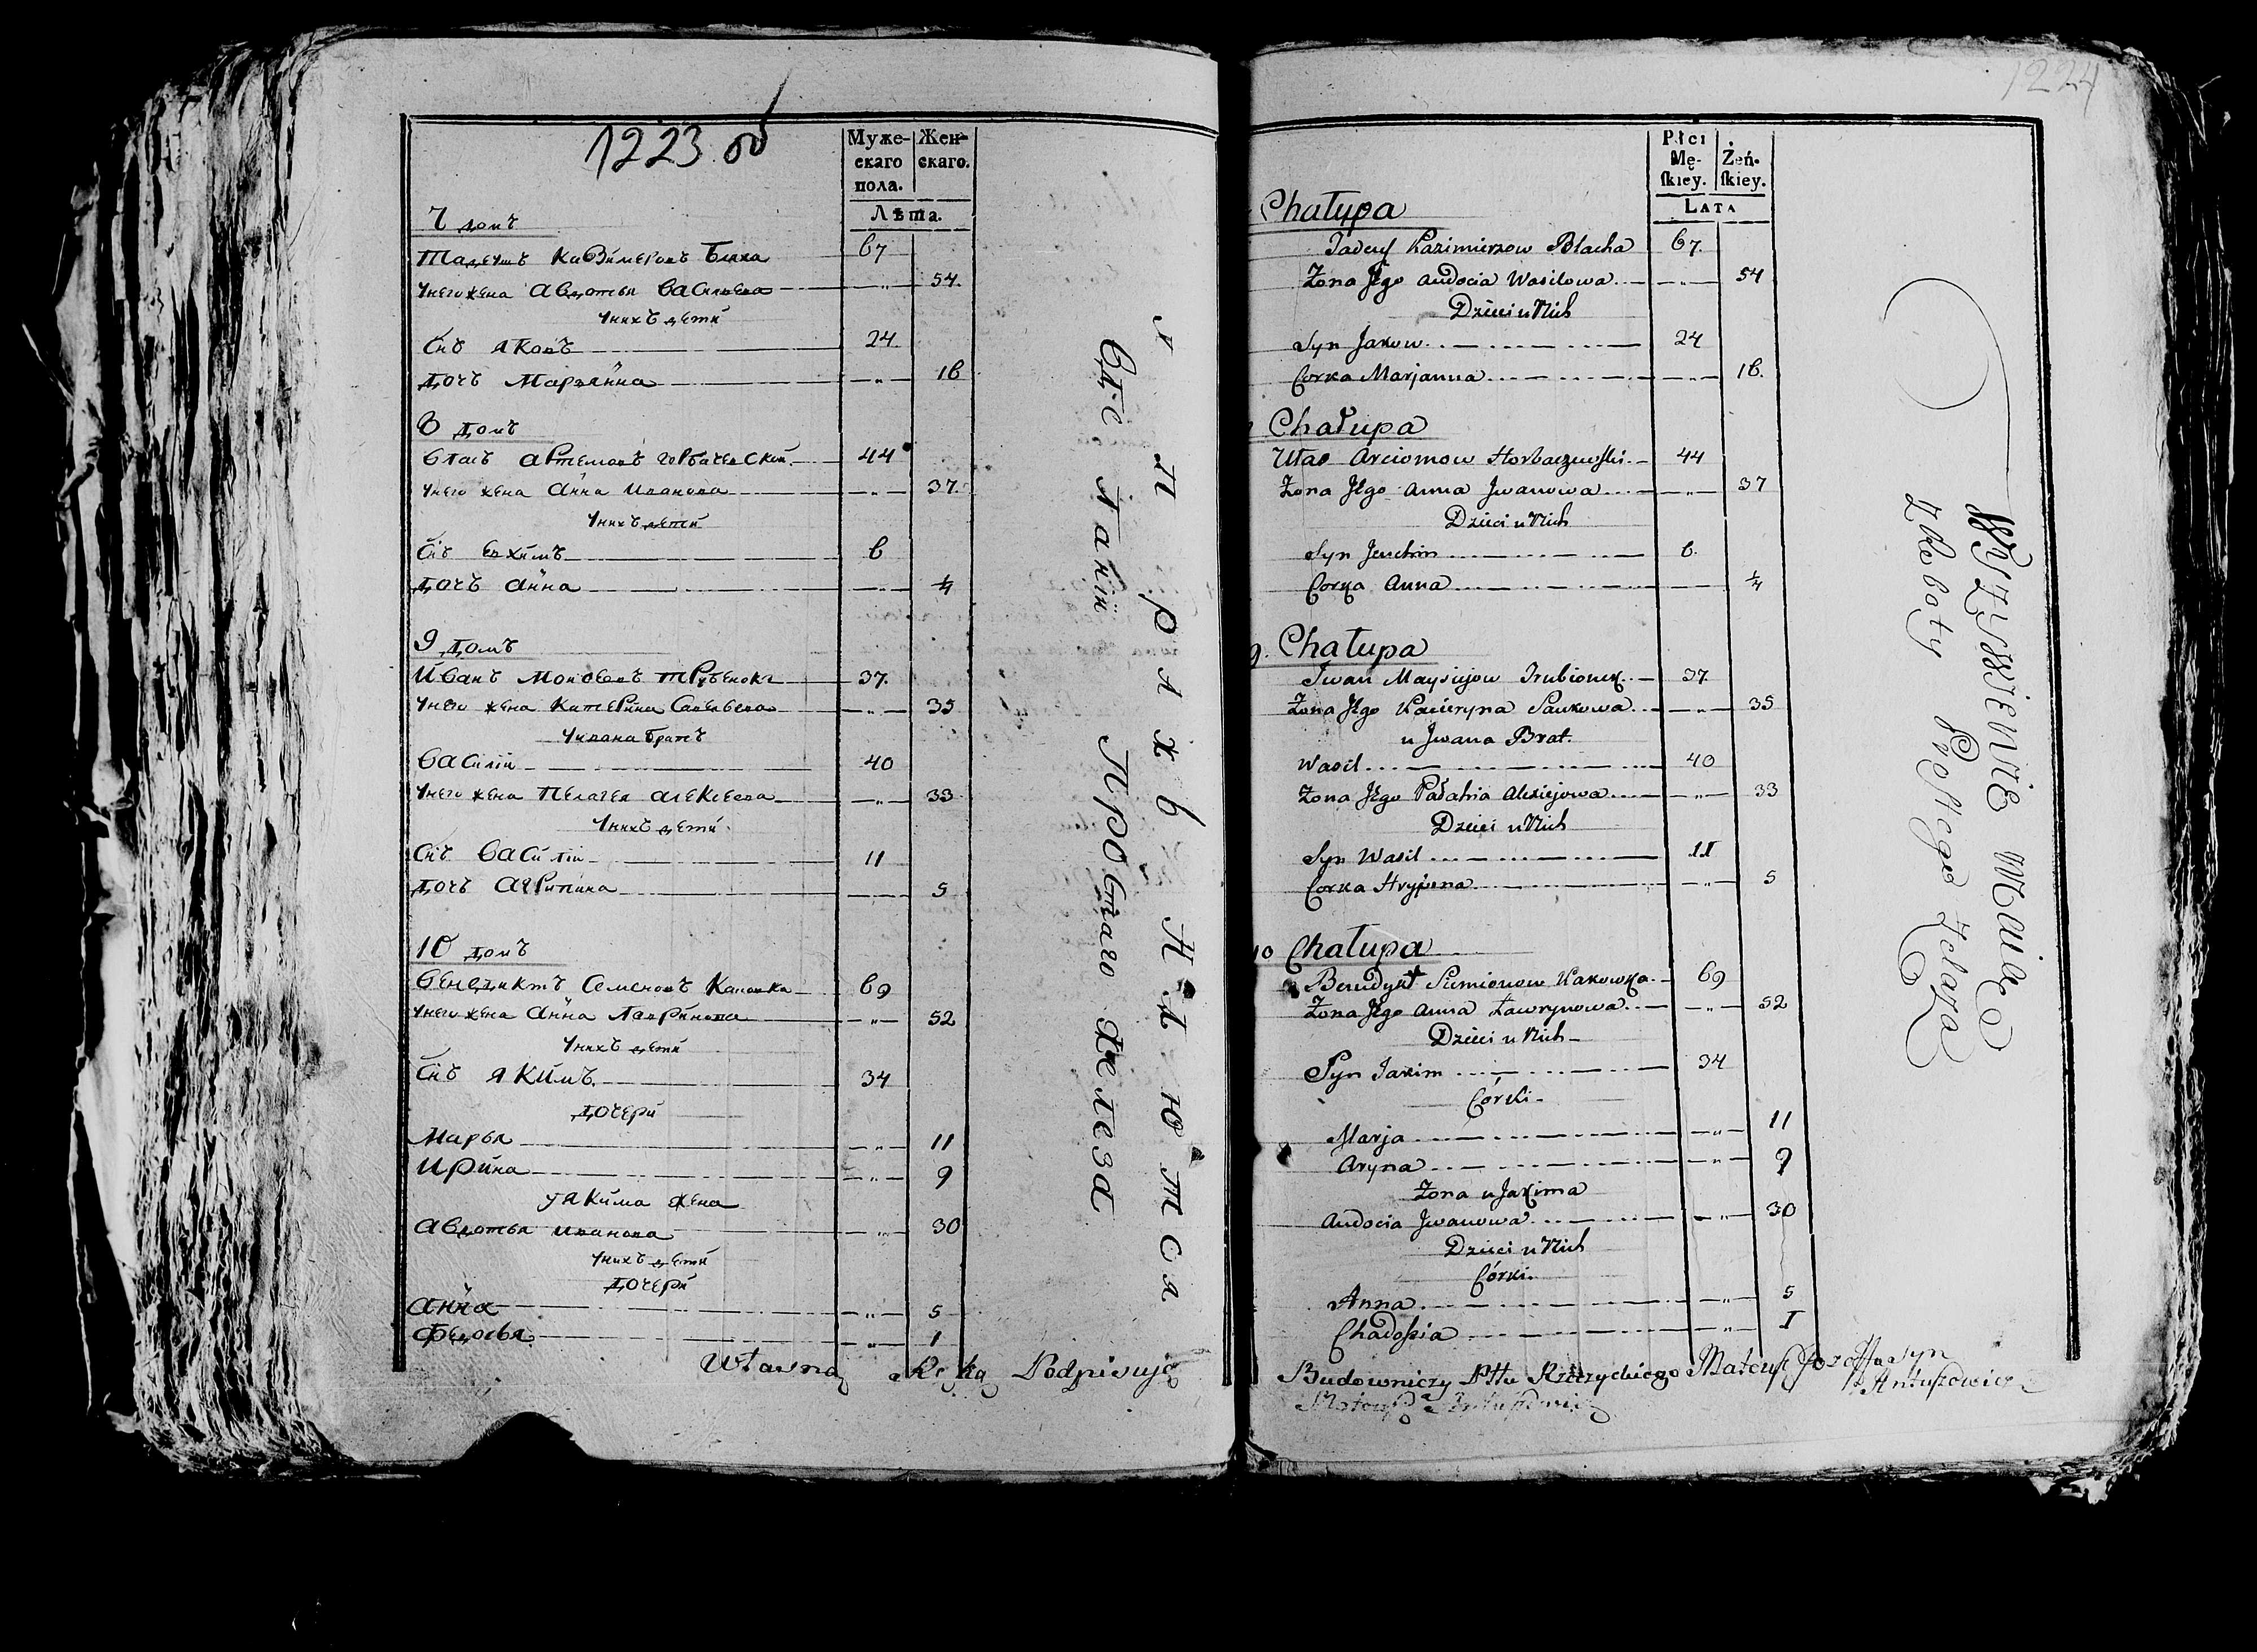 1223 об
Муже-
скаго
пола.
Жен-
скаго.
Лѣта.
7 домъ
Тадеушъ Казимеровъ Блаха 67
унего жена Авдотья Васильева 54.
Унихъ дети
Снъ Яковъ 24.
дочъ Марьянна 16
8 домъ
Власъ Артемовъ горбачевский 44
унего жена Анна Иванова 37.
Унихъ дети
Снъ Евхимъ 6
дочъ Анна 1/4
9 домъ
Иванъ 37.
унего жена Катерина Савельева 35
Уивана братъ
Василiй 40
Унего жена Пелагея Алексеева 33
Унихъ дети
Снъ Василiй 11
дочъ Агрипина 5
10 домъ
Венедиктъ Семеновъ Каковка 69
унего жена Анна Лавринова 52
Унихъ дети
Снъ Якимъ 34
дочери
Марья 11
Ирина 9
уякима жена
Авдотья Иванова 30
Унихъ дети
дочери
Анна 5
Федосья 1
Własną Ręką Podpisuję
1224
Płci
Mę-
skiey.
Żeń-
skiey.
LATA
Chałupa
Tadeusz Kazimierzow Blacha 67.
Żona Jego Audocia Wasilowa 54
Dzieci u Nich
Syn Jakow 24
Corka Marjanna 16.
Chałupa
Ułas Arciomow Horbaczewski 44
Żona Jego Anna Jwanowa 37
Dzieci u Nich
Syn Jeuchim 6.
Corka Anna 1/4
9. Chałupa
Iwan Maysiejow 37
Żona Jego Kacieryna Saukowa 35
u Jwana Brat.
Wasil 40
Żona Jego Pałahia Alexiejowa 33
Dzieci u Nich
Syn Wasil 11
Corka Hrypina 5
10 Chałupa
Benedykt Siemionow Kakowka 69
Żona Jego Anna Ławrynowa 52
Dzieci u Nich
Syn Jakim 34
Córki
Marja 11
Aryna 9
Żona u Jakima
Audocia Jwanowa 30
Dzieci u Nich
Córki.
Anna 5
Chadosia 1
Budowniczy Pttu Rzeczyckiego Mateusz Jozeffa syn
Antuszewicz